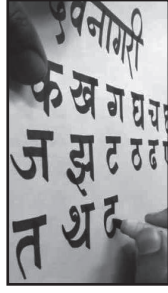 देवनागरी
क ख ग घ च
ज झ ट ठ ढ
त थ द